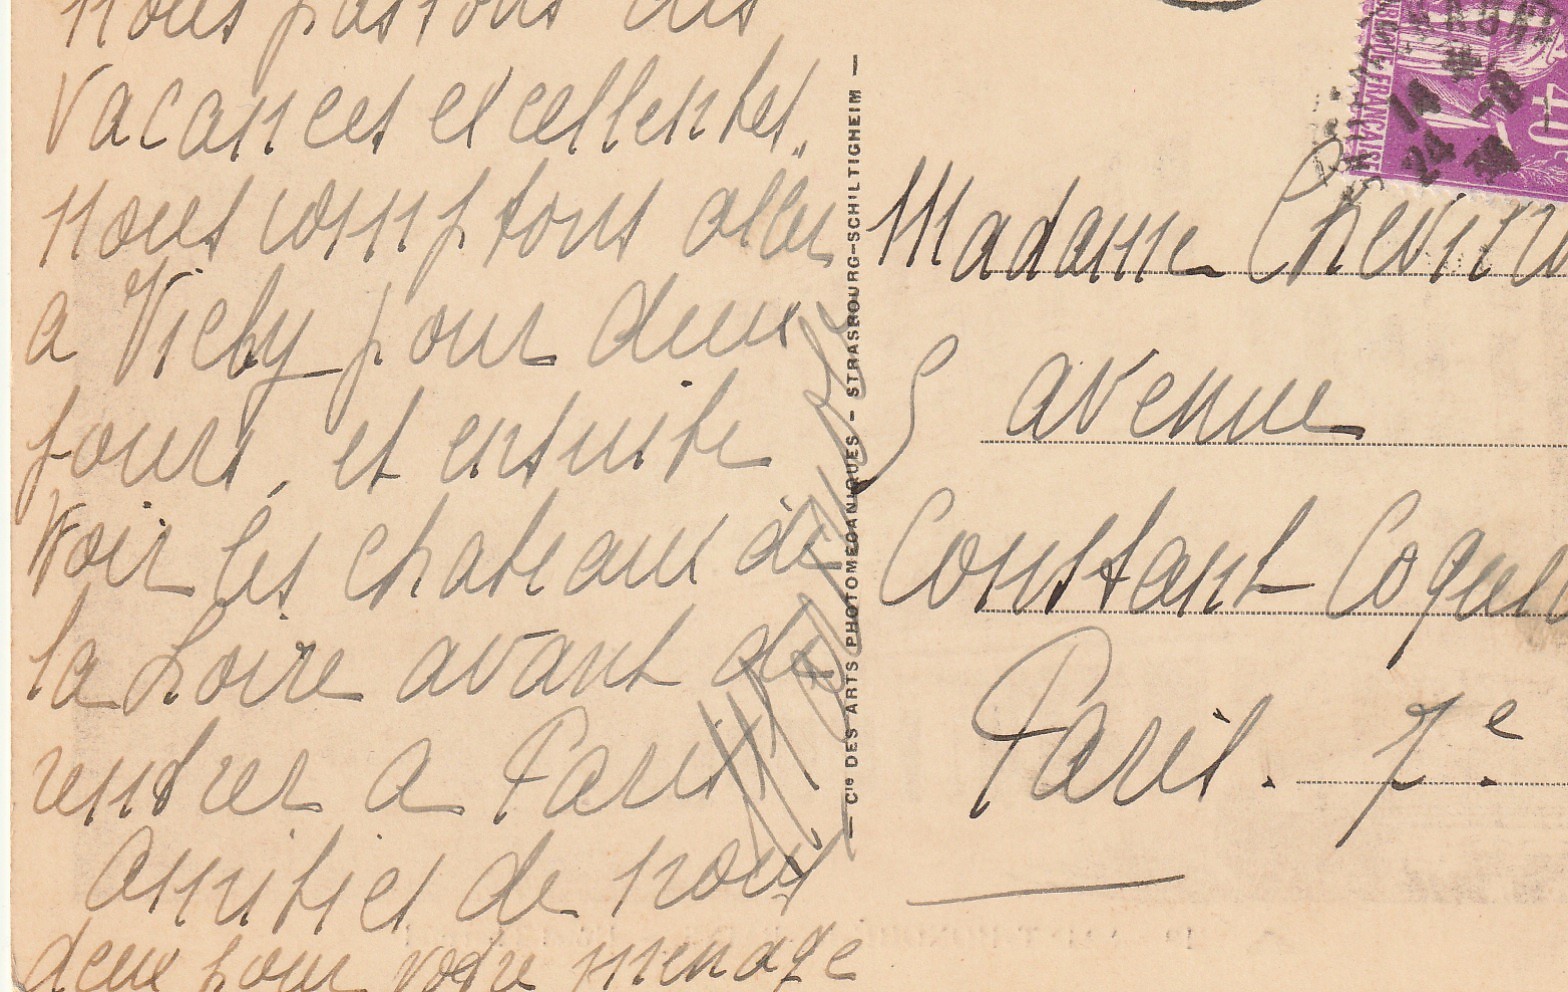 nous passons des
vacances excellentes..
nous comptons aller
a Vichy pour deux
jours, et ensuite
voir les chateaux de
la Loire avant de
rentrer a Paris
Amitiés de nous
deux pour votre menage
— Cie DES ARTS PHOTOMECANIQUES — STRASBOURG-SCHILTIGHEIM —
Madame
5 avenue
Constant Coquelin
Paris. 7.e
FRANÇAISE
40c
24 -8